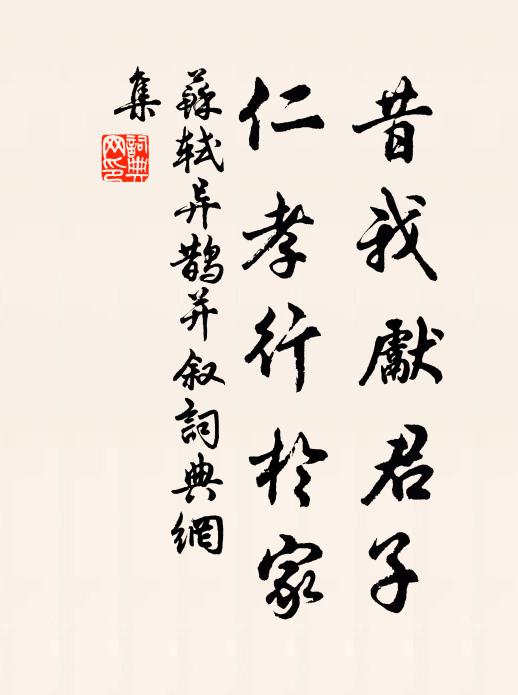 昔我獻君子
仁孝行於家
蘇軾异鵲并叙詞典網
集
詞典网印